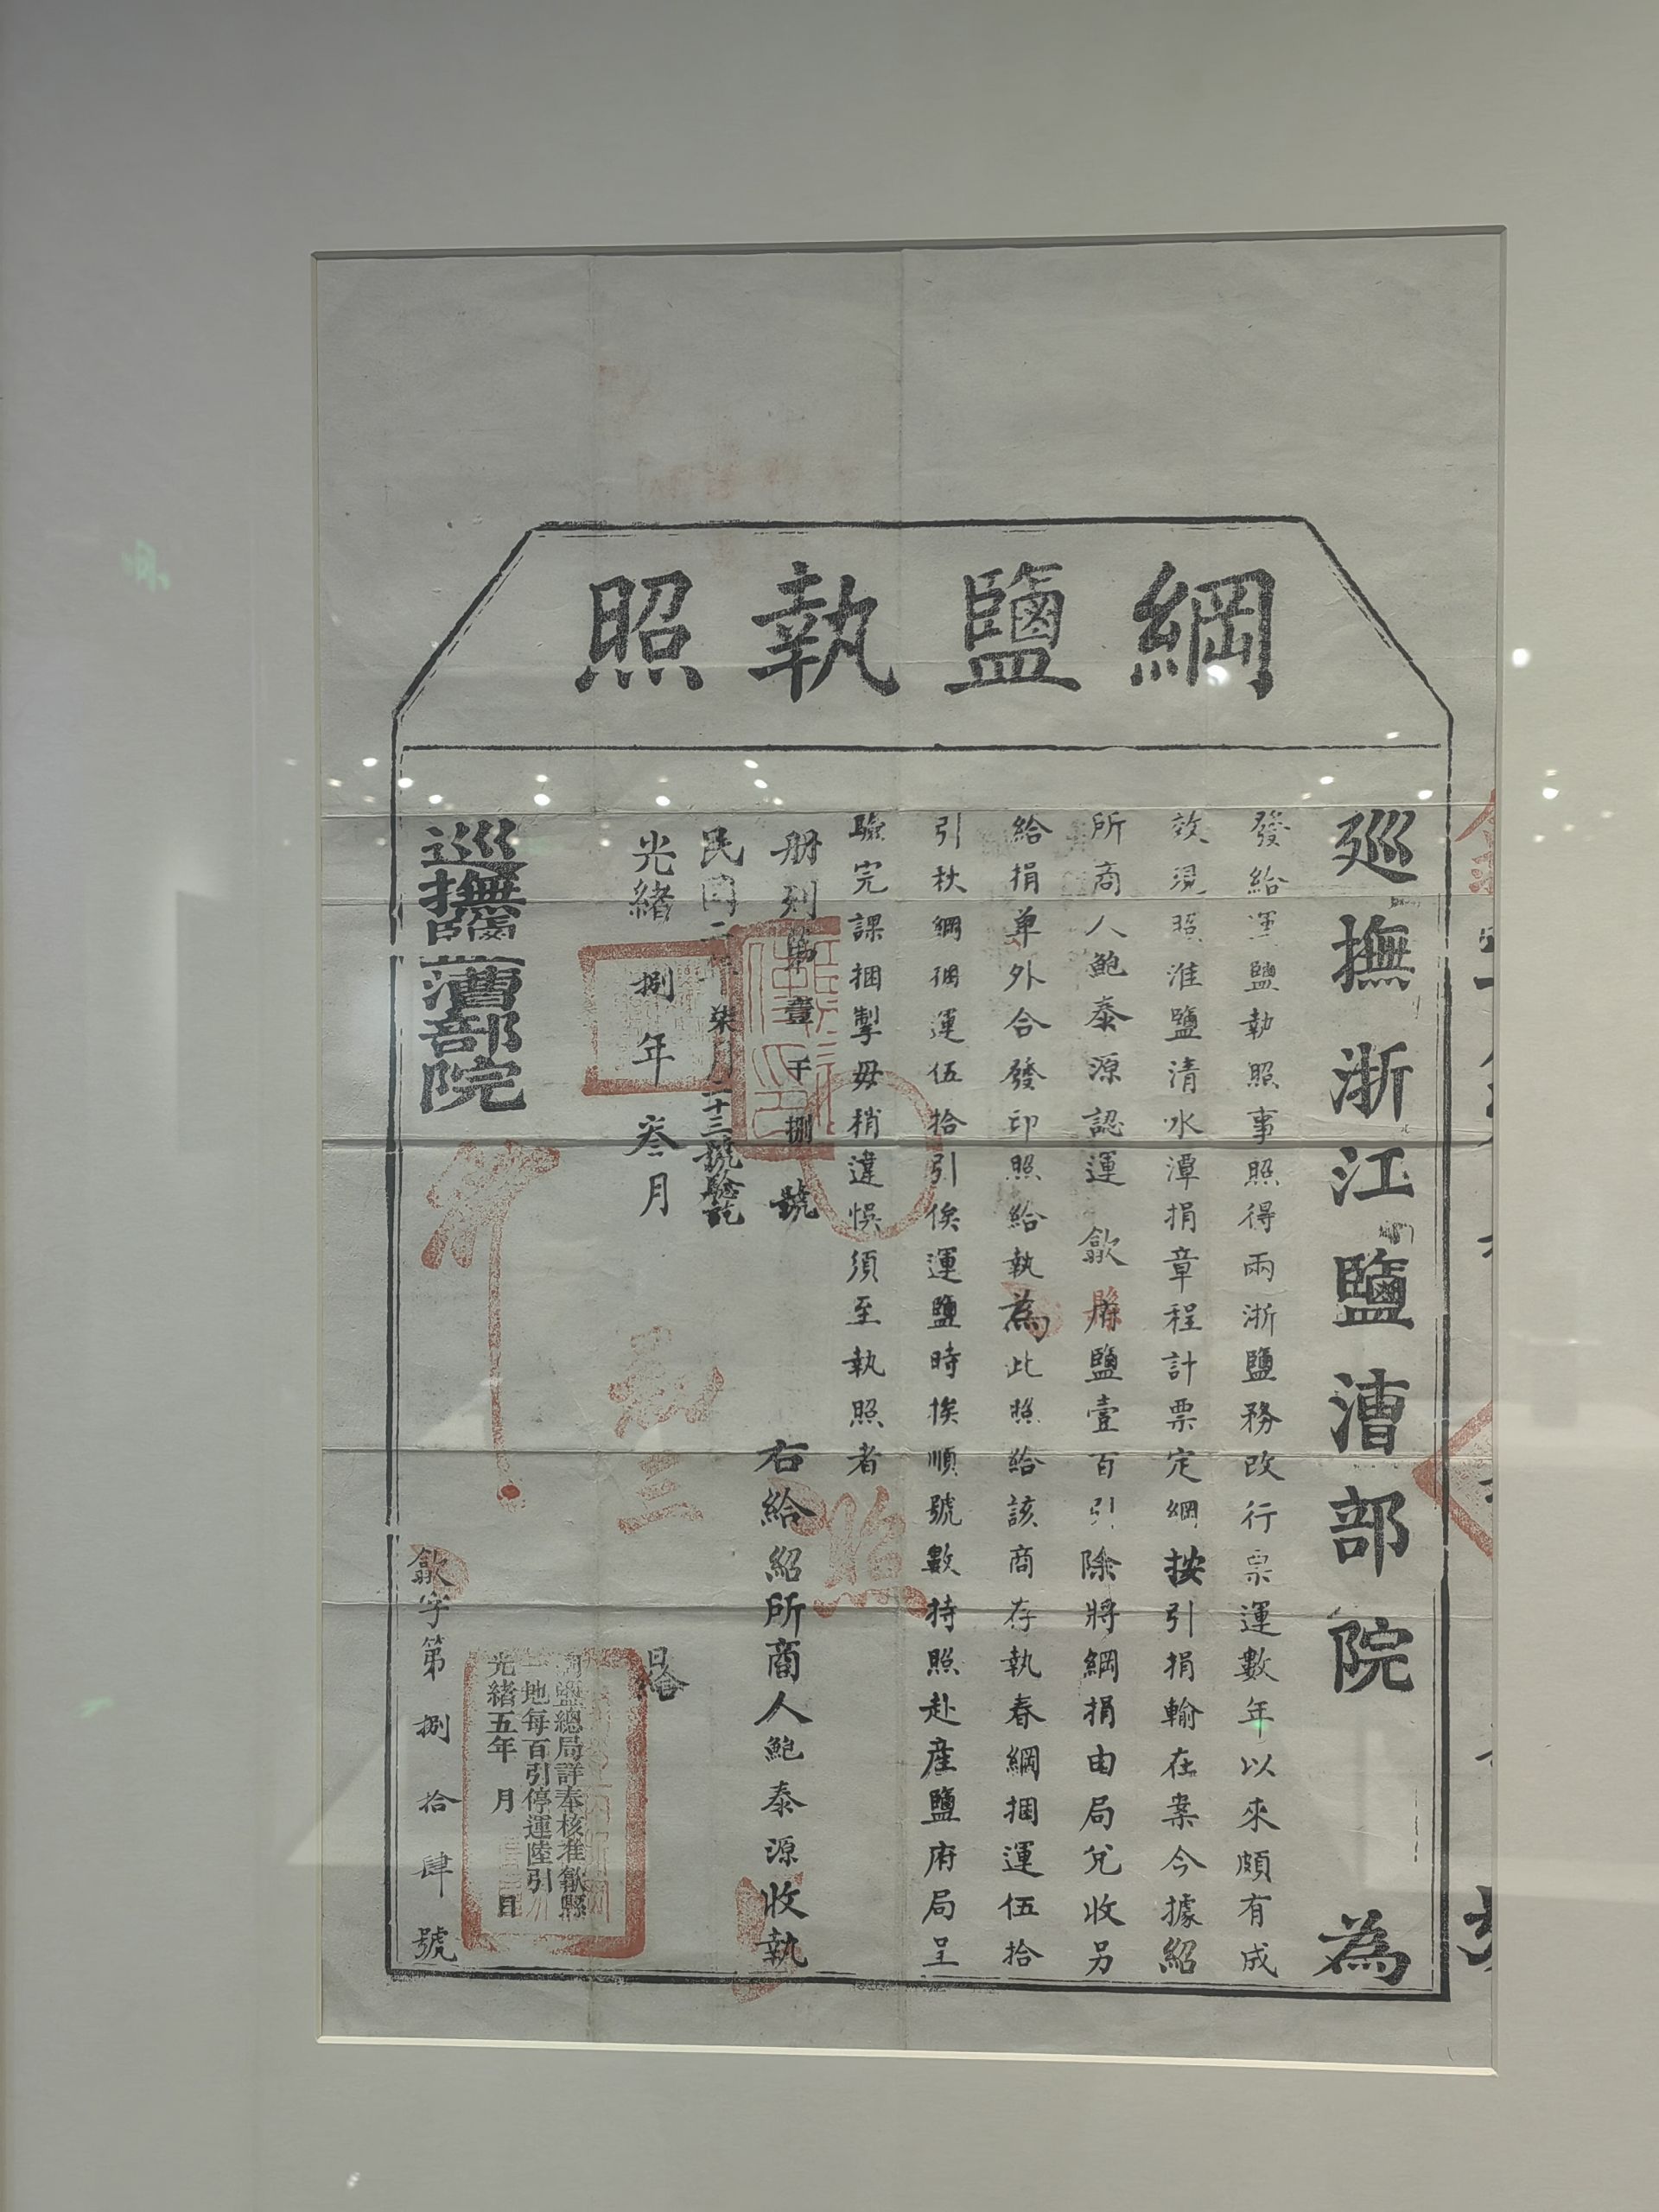 綱鹽執照
巡撫浙江鹽漕部院 為
發給運鹽執照事照得兩浙鹽務改行票運數年以來頗有成
效現照淮鹽清水潭捐章程計票定綱按引捐輸在案今據紹
所商人鮑泰源認運 歙縣 府鹽壹百引除將綱捐由局兌收另
給捐單外合發印照給執為此照給該商存執春綱捆運伍拾
引秋綱捆運伍拾引俟運鹽時挨順號數持照赴產鹽府局呈
驗完課捆掣毋稍違悞須至執照者
册列第壹千捌號
右給紹所商人鮑泰源收執
民國二 柒月二十三號驗訖
光緒捌年叁月 日給
巡撫鹽漕部院
鹽總局詳奉核准歙縣
一地每百引停運陸引
光緒五年 月 日
歙字第捌拾肆號